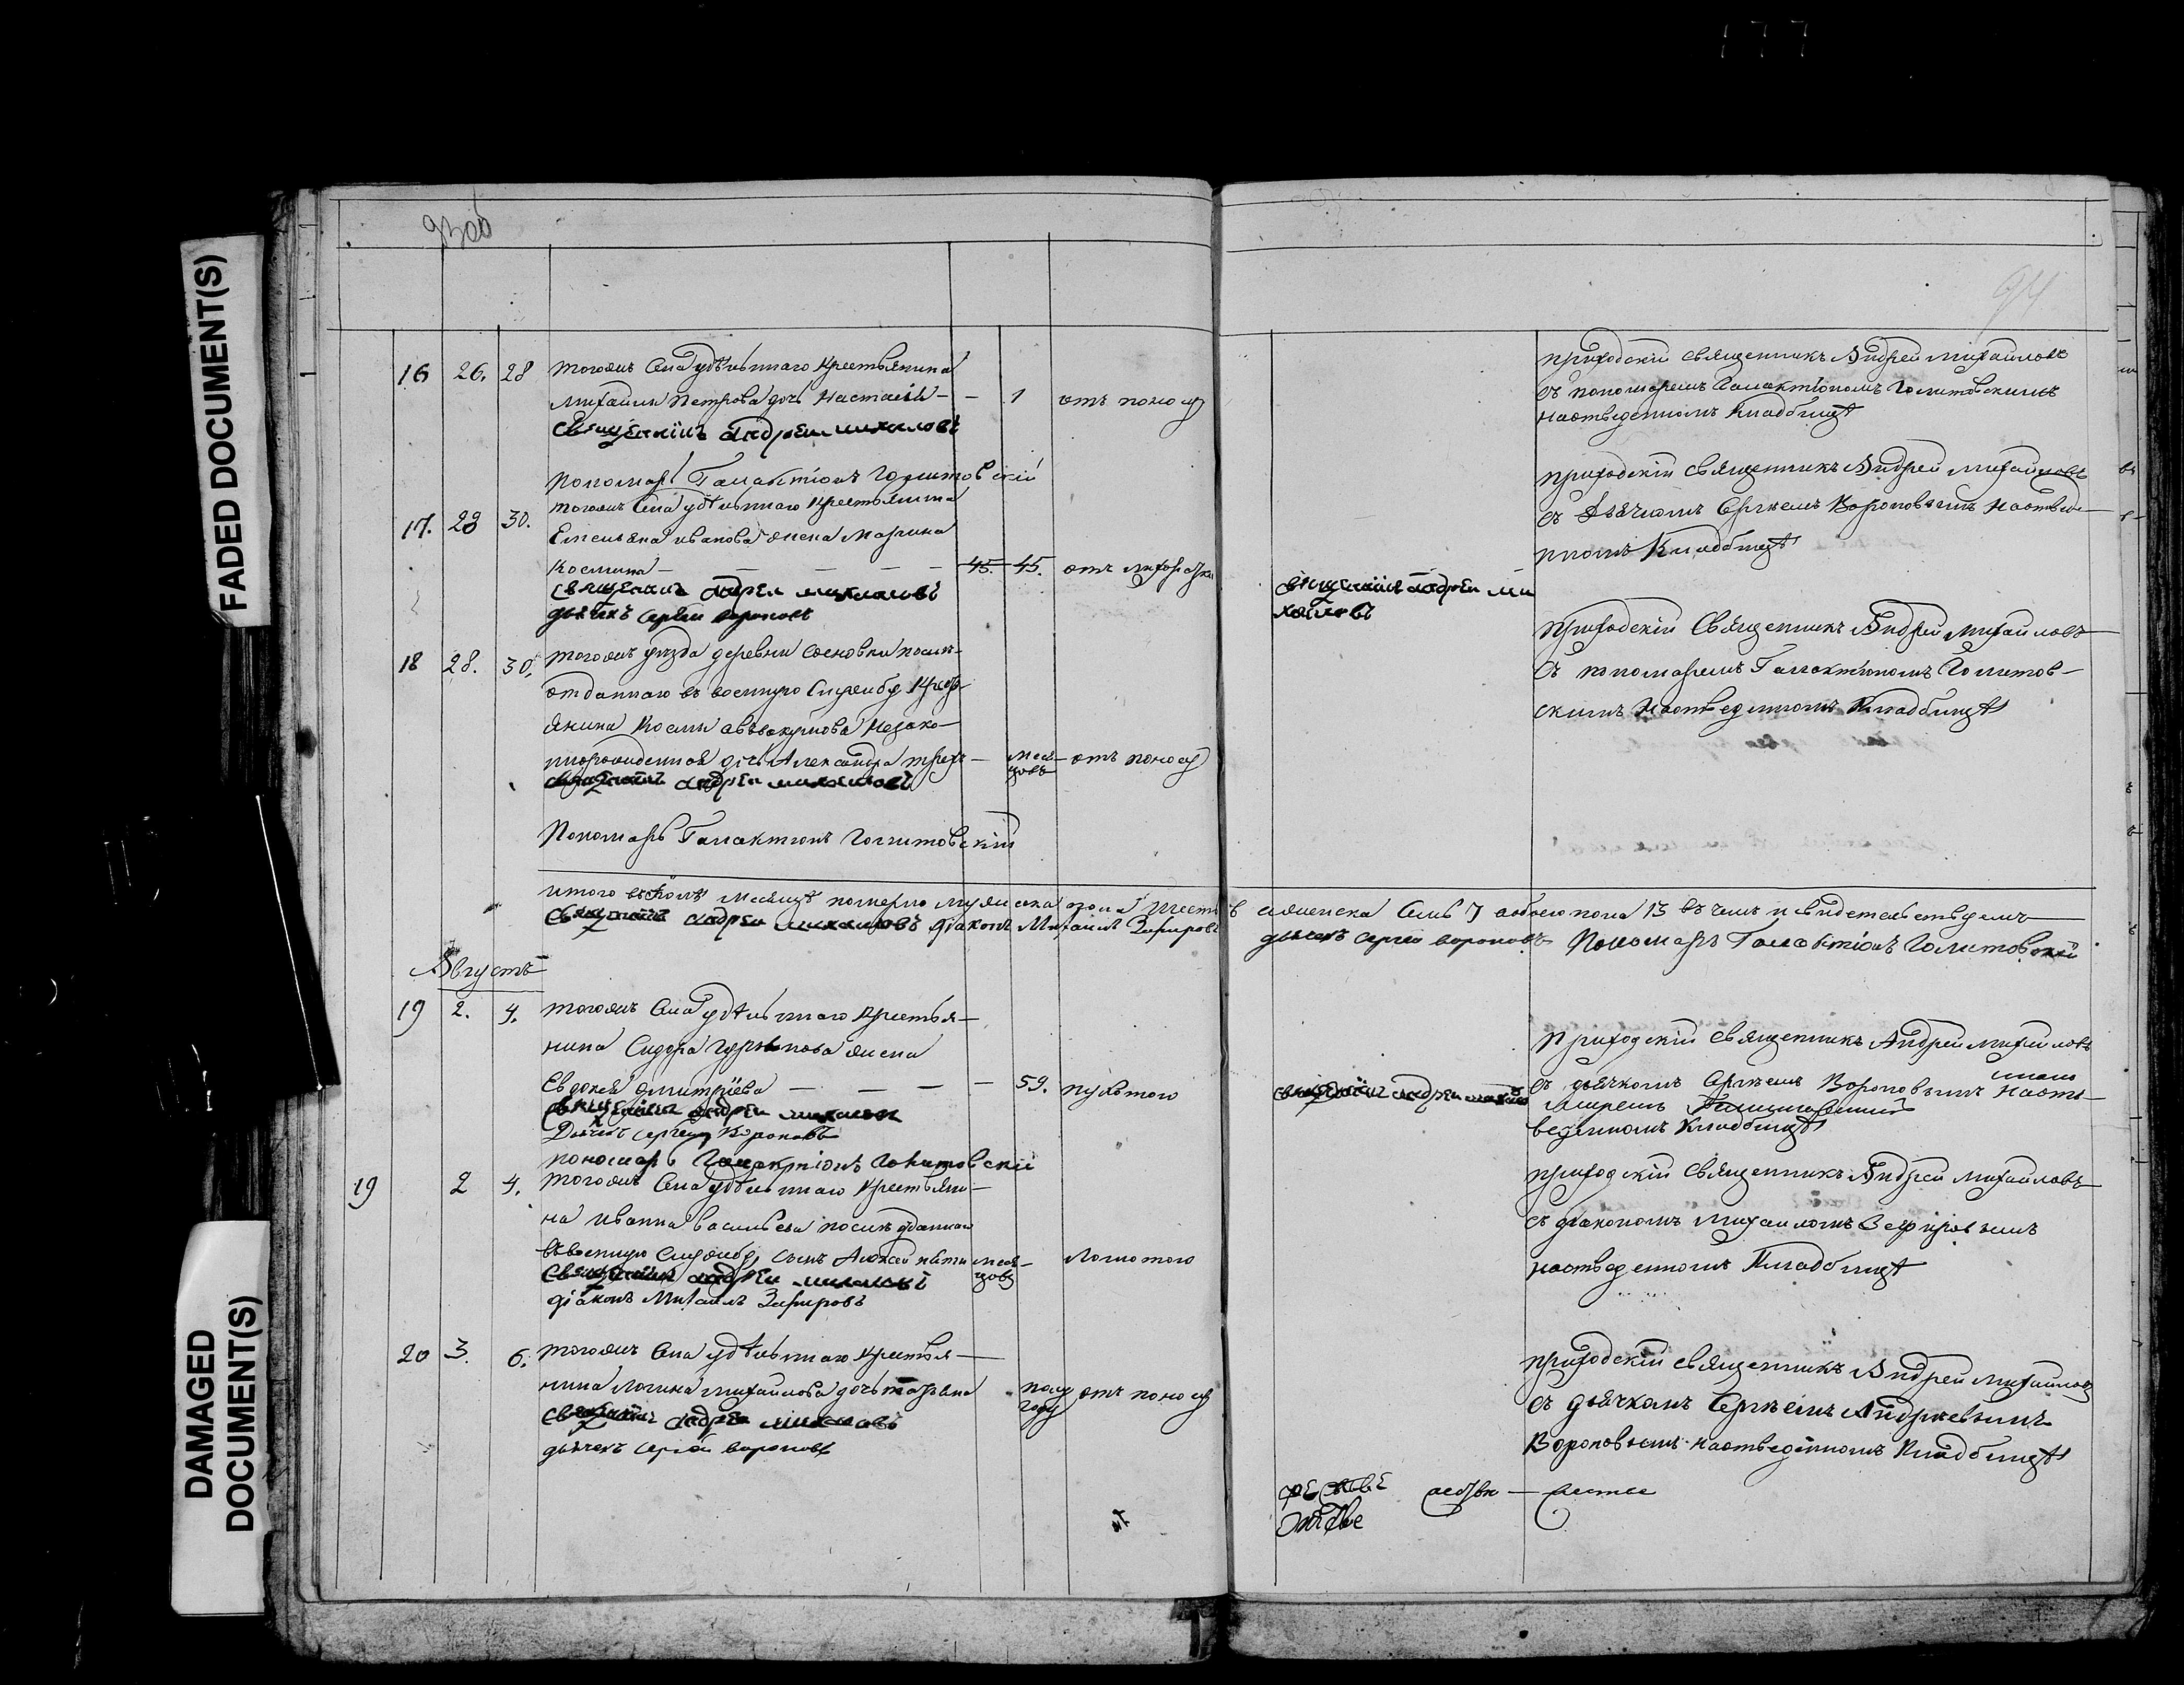 177
93об
94
FADED DOCUMENT(S)
DAMAGED DOCUMENT(S)
16 26. 28 тогожъ Села удѣльнаго крестьянина
Михаила Петрова дочь Настасья — — 1 отъ поносу
священникъ андрей михаиловъ
Пономарь Галактионъ Голитовскій
приходскій священникъ Андрей Михаиловъ
съ пономаремъ Галактіономъ Голитовскимъ
наотведенномъ кладбищѣ
17. 28 30. тогожъ Села удѣльнаго крестьянина
Емельяна иванова жена Марина
Космина — — — — 45. 45. отъ лихорадки
священникъ андреи михаиловъ
дьячекъ сергѣи вороновъ
священникъ андреи ми
хаиловъ
приходскій священникъ Андрей Михаиловъ
съ дьячкомъ Сергѣемъ Вороновымъ наотведе
нномъ Кладбищѣ
18 28. 30. тогожъ уѣзда деревни Сосновки послѣ
отданнаго въ военную Службу крест
янина Космы аввакумова незако
ннорожденная дочь Александра трехъ — меся
цовъ отъ поносу
священникъ андреи михаиловъ
Пономарь Галактионъ Голитовскій
приходскій Священникъ Андрей Михаиловъ
съ пономаремъ Галактиономъ Голитов
скимъ наотведенномъ Кладбищѣ
итого въ Іюлѣ месяцѣ померло мужеска пола шесть 6 аженска семь 7 aобоего пола 13 въ чемъ и свидетельствуемъ
священникъ андреи михаиловъ діаконъ Михаилъ Зефировъ дьячекъ сергѣй вороновъ Пономарь Галактіонъ Голитовскій
Августъ
19 2. 4. тогожъ Села удѣльнаго крестья
нина Сидора Гурьянова жена
Евдокея дмитріева — — — — 59. пухлотою
священникъ андреи михаиловъ
Дьячекъ сергѣй Вороновъ
пономарь Галактіонъ Голитовскій
священникъ андреи михаиловъ
приходскій священникъ Андрей Михаиловъ
съ дьячкомъ Сергѣемъ Вороновымъ наот
веденномъ кладбищѣ
19 2 4. тогожъ Села удѣльнаго крестьяни
на ивана васильева послѣ отданнаго
въвоенную Службу, сынъ Алексей пяти меся
цовъ ломотою
священникъ андреи михаиловъ
діаконъ Михаилъ Зефировъ
приходскій священникъ Андрей Михаиловъ
съ диакономъ Михаиломъ Зефировымъ
наотведенномъ Кладбищѣ
20 3. 6. тогожъ Села удѣльнаго крестья
нина Логина Михаилова дочь татьяна полу
году отъ поносу
священникъ андреи михаиловъ
дьячекъ сергѣй вороновъ
приходскій священникъ Андрей Михаиловъ
съ дьячкомъ Сергѣемъ Андреевымъ
Вороновымъ наотведенномъ Кладбищѣ